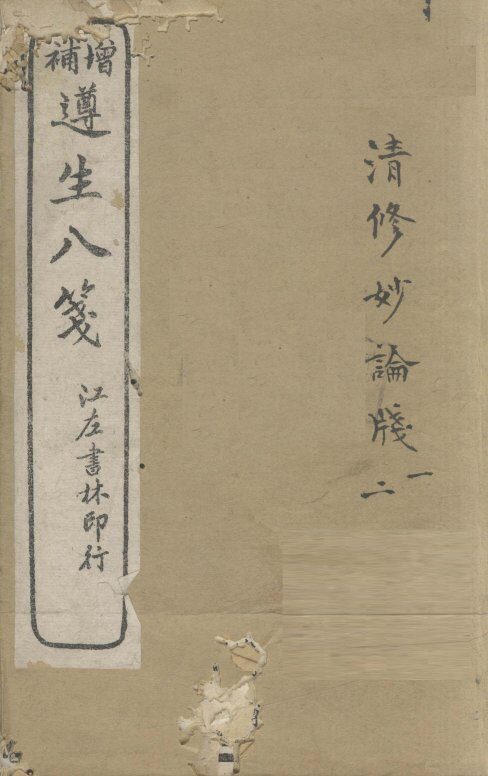 清修妙論牋一二
增補
遵生八箋
江左書林印行